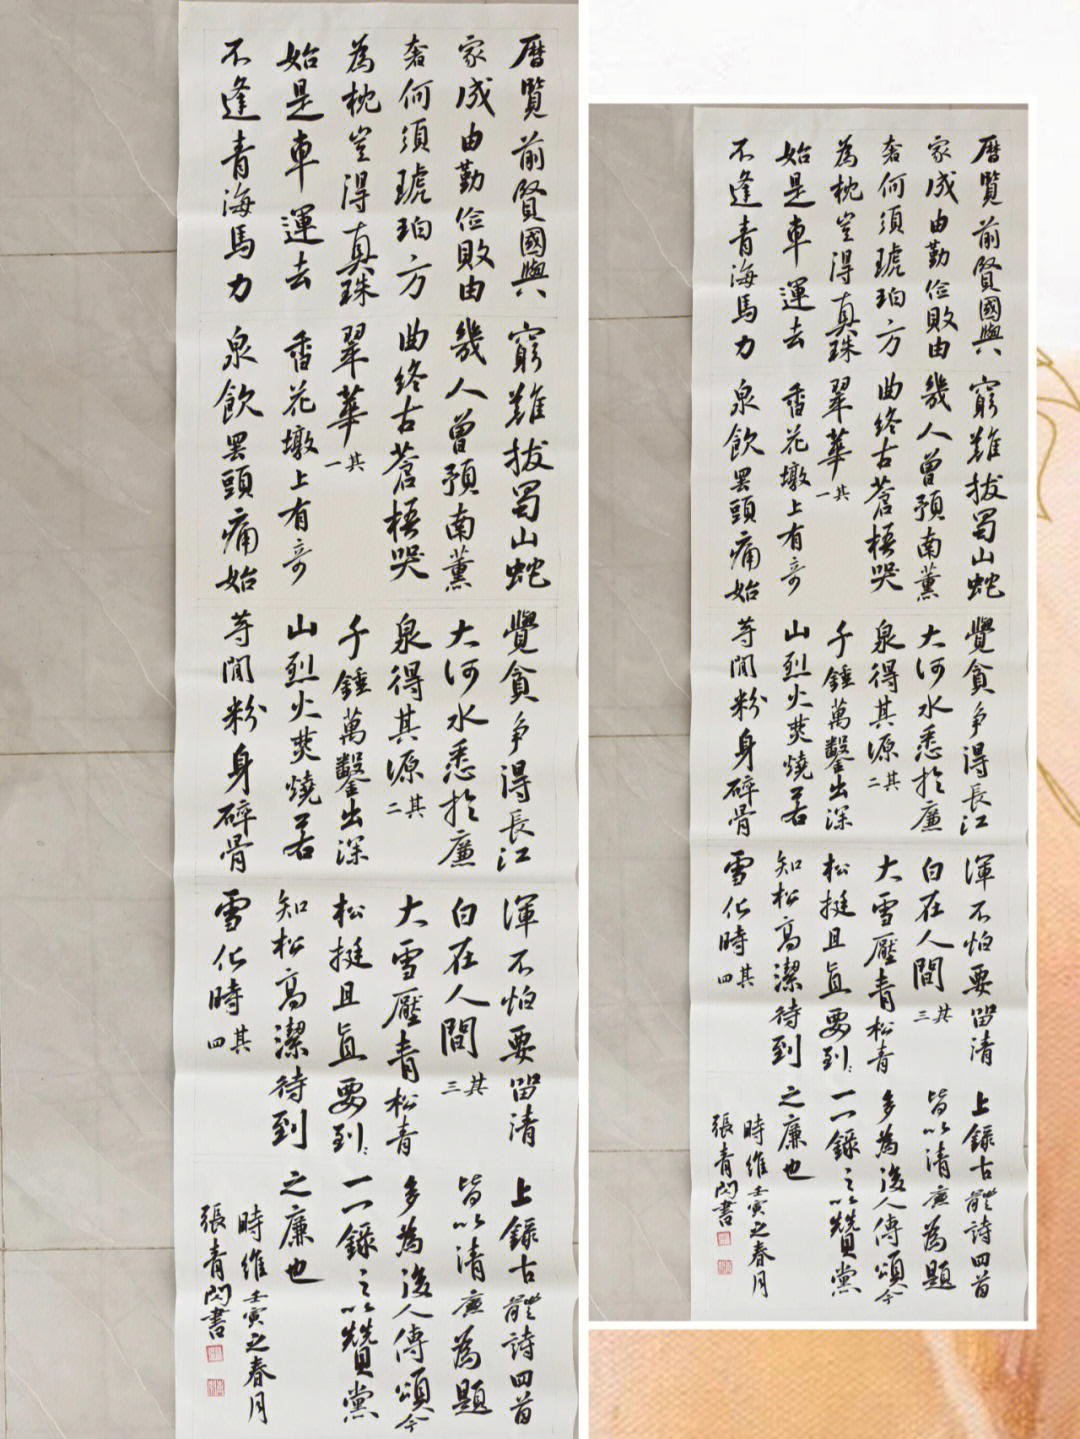 曆覽前賢國與
家成由勤儉敗由
奢何須琥珀方
為枕豈得真珠
始是車運去
不逢青海馬力
窮難拔蜀山蛇
幾人曾預南薰
曲終古蒼梧哭
翠華 其一
香花墩上有奇
泉飲罷頭痛始
覺貪爭得長江
大河水悉於廉
泉得其源 其二
千錘萬鑿出深
山烈火焚燒若
等閒粉身碎骨
渾不怕要留清
白在人間 其三
大雪壓青松青
松挺且直要到
知松高潔待到
雪化時 其四
上錄古體詩四首
皆以清廉為題
多為後人傳頌今
一一錄之以贊黨
之廉也
時維壬寅之春月
張青閃書
曆覽前賢國與
家成由勤儉敗由
奢何須琥珀方
為枕豈得真珠
始是車運去
不逢青海馬力
窮難拔蜀山蛇
幾人曾預南薰
曲終古蒼梧哭
翠華 其一
香花墩上有奇
泉飲罷頭痛始
覺貪爭得長江
大河水悉於廉
泉得其源 其二
千錘萬鑿出深
山烈火焚燒若
等閒粉身碎骨
渾不怕要留清
白在人間 其三
大雪壓青松青
松挺且直要到
知松高潔待到
雪化時 其四
上錄古體詩四首
皆以清廉為題
多為後人傳頌今
一一錄之以贊黨
之廉也
時維壬寅之春月
張青閃書